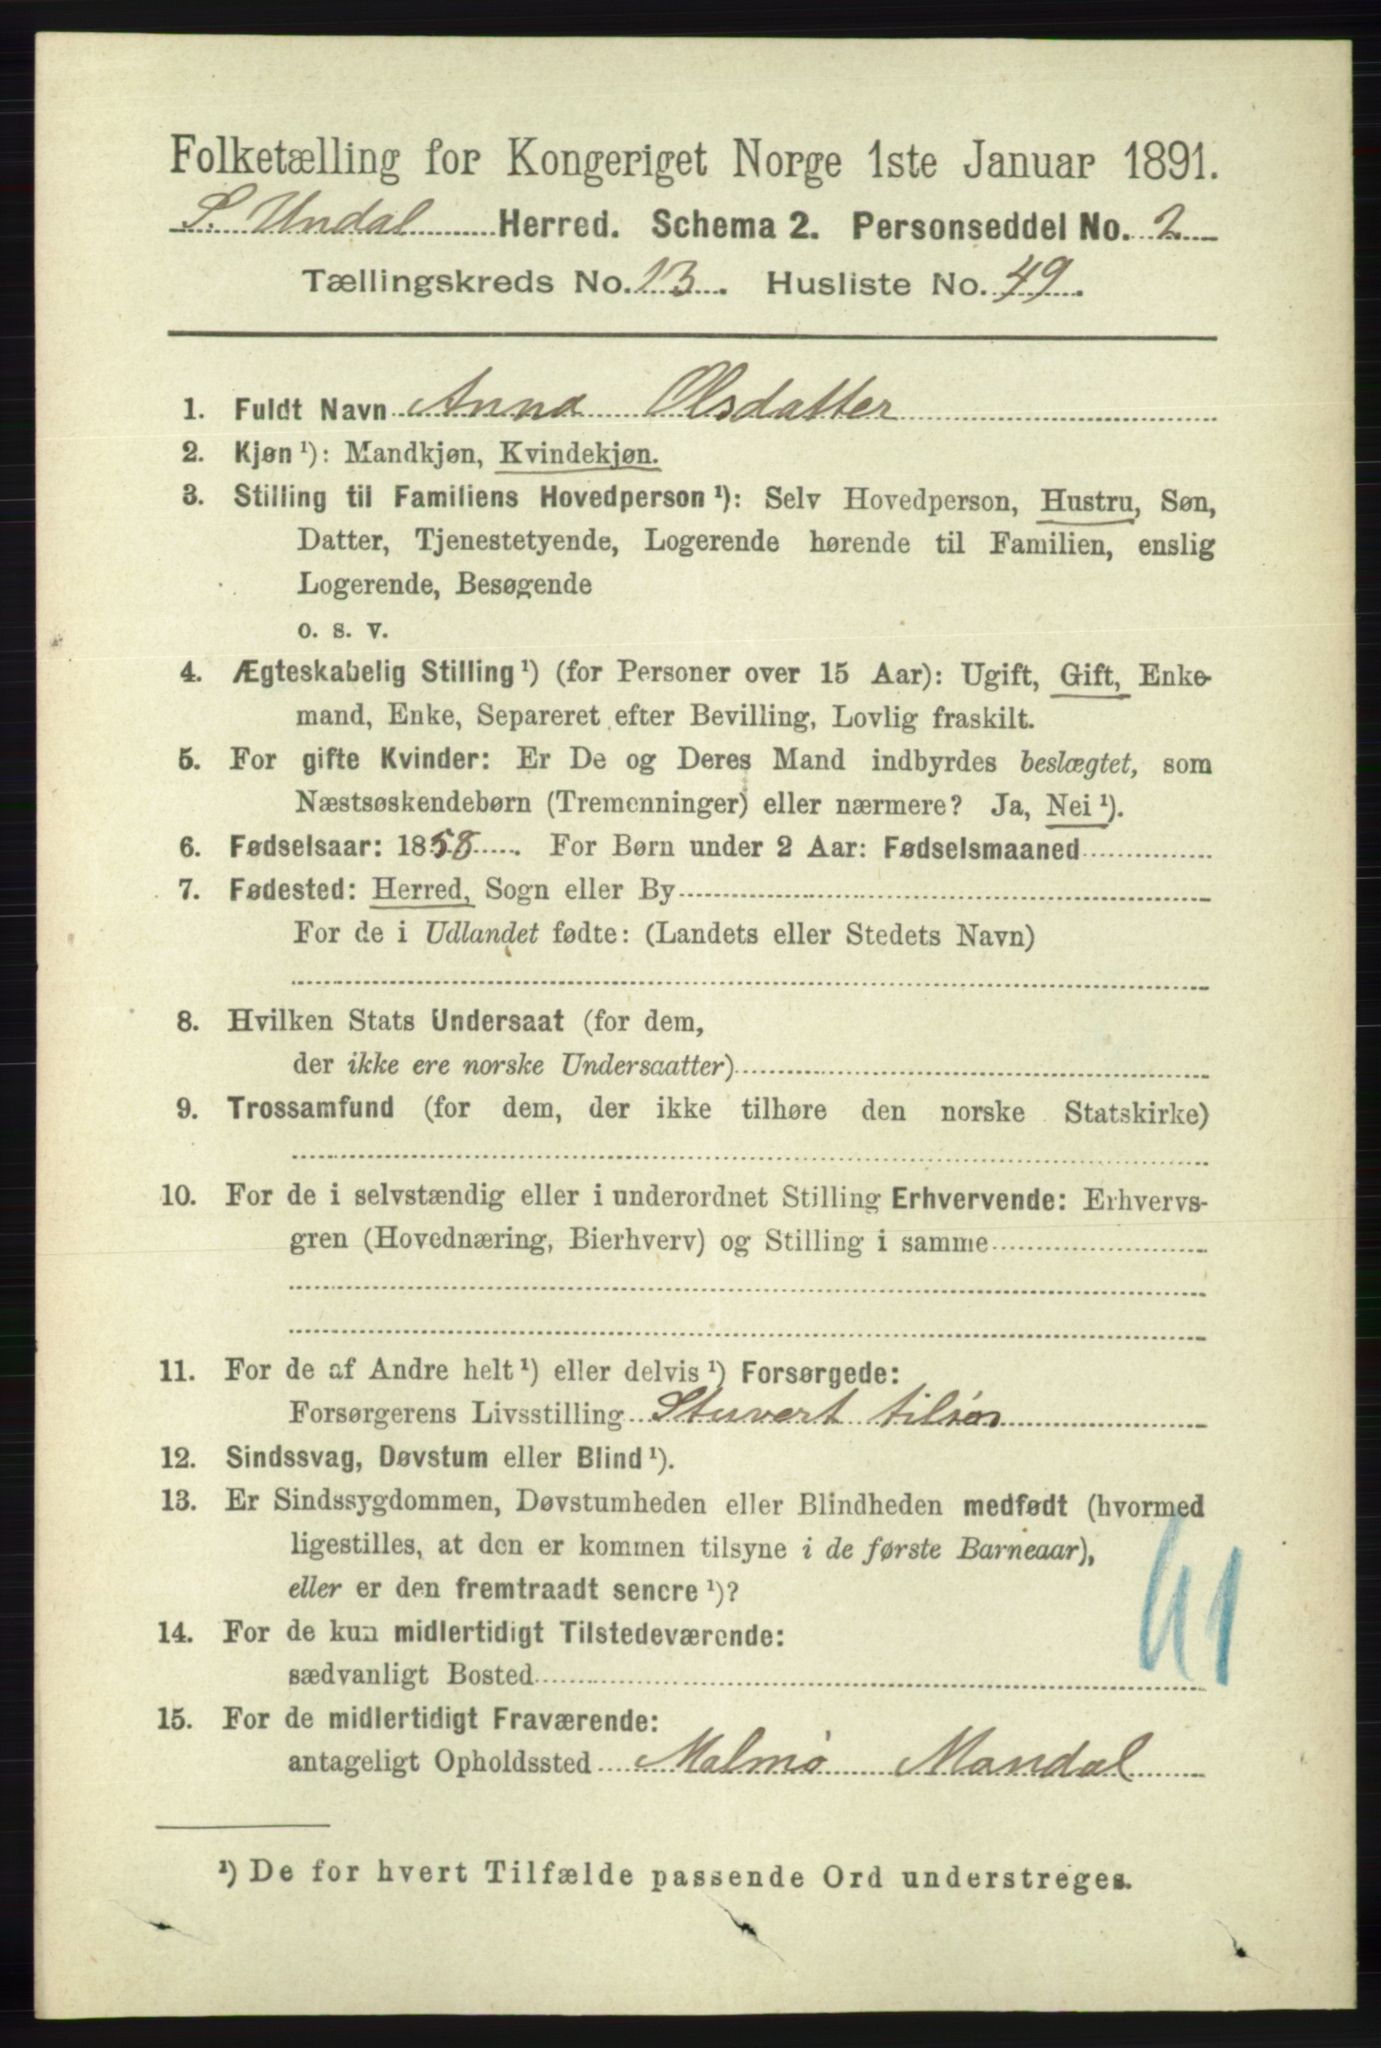 Folketælling for Kongeriget Norge 1ste Januar 1891.
S. Undal Herred. Schema 2. Personseddel No. 2
Tællingskreds No. 13. Husliste No. 49.
1. Fuldt Navn Anna Olsdatter
2. Kjøn ¹): Mandkjøn, Kvindekjøn.
3. Stilling til Familiens Hovedperson ¹): Selv Hovedperson, Hustru, Søn,
Datter, Tjenestetyende, Logerende hørende til Familien, enslig
Logerende, Besøgende
o. s. v.
4. Ægteskabelig Stilling ¹) (for Personer over 15 Aar): Ugift, Gift, Enke-
mand, Enke, Separeret efter Bevilling, Lovlig fraskilt.
5. For gifte Kvinder: Er De og Deres Mand indbyrdes beslægtet, som
Næstsøskendebørn (Tremenninger) eller nærmere? Ja, Nei ¹).
6. Fødselsaar: 1858. For Børn under 2 Aar: Fødselsmaaned
7. Fødested: Herred, Sogn eller By
For de i Udlandet fødte: (Landets eller Stedets Navn)
8. Hvilken Stats Undersaat (for dem,
der ikke ere norske Undersaatter)
9. Trossamfund (for dem, der ikke tilhøre den norske Statskirke)
10. For de i selvstændig eller i underordnet Stilling Erhvervende: Erhvervs-
gren (Hovednæring, Bierhverv) og Stilling i samme
11. For de af Andre helt ¹) eller delvis ¹) Forsørgede:
Forsørgerens Livsstilling Stuvert tilsøs
12. Sindssvag, Døvstum eller Blind ¹).
13. Er Sindssygdommen, Døvstumheden eller Blindheden medfødt (hvormed
ligestilles, at den er kommen tilsyne i de første Barneaar),
eller er den fremtraadt senere ¹)?
41
14. For de kun midlertidigt Tilstedeværende:
sædvanligt Bosted
15. For de midlertidigt Fraværende:
antageligt Opholdssted Malmø Mandal
¹) De for hvert Tilfælde passende Ord understreges.